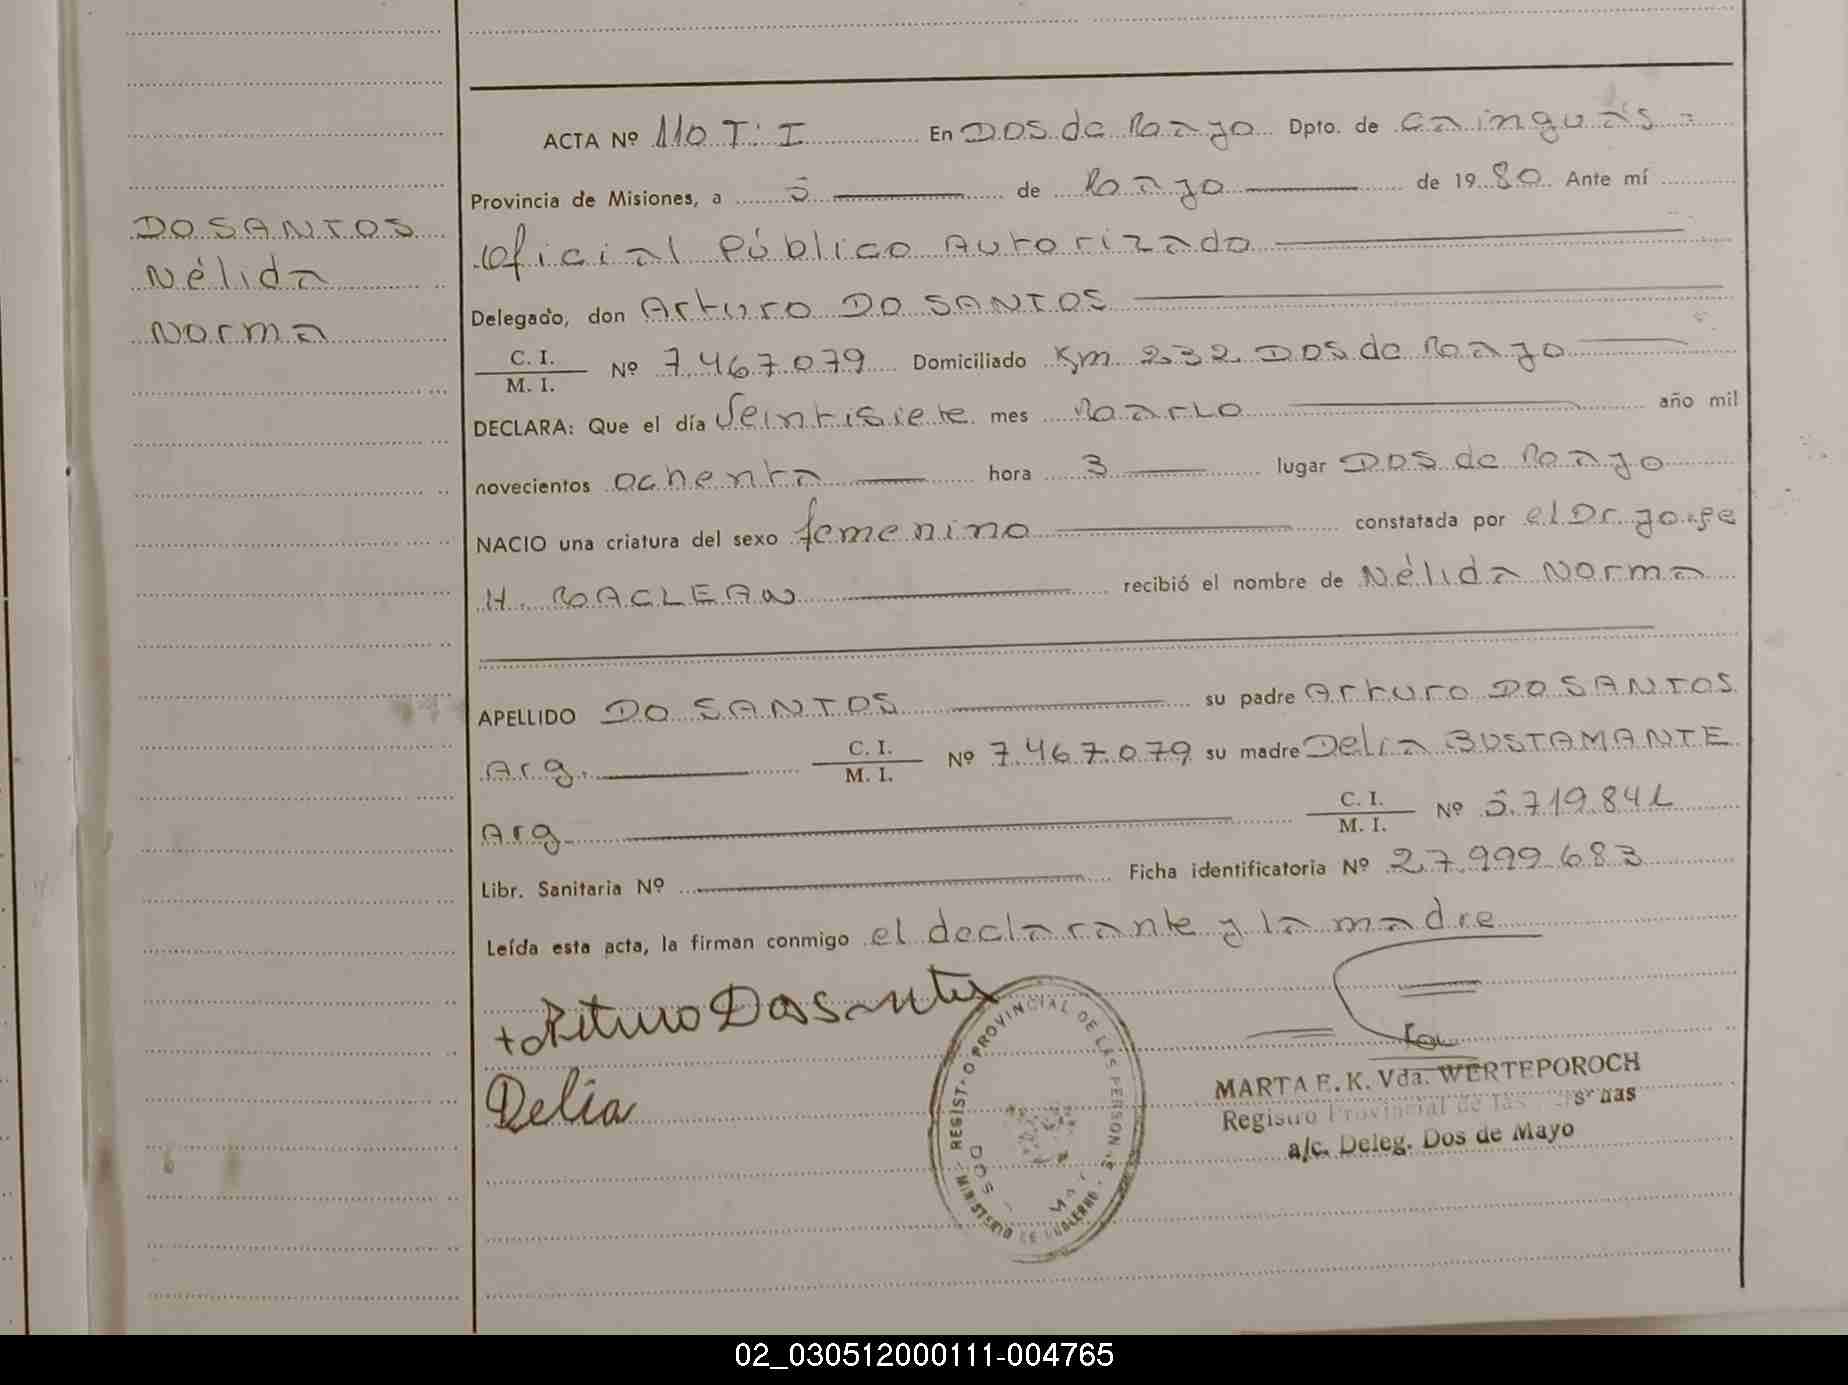 ACTA Nº 110 T: I En DOS de Mayo Dpto. de Cainguás
Provincia de Misiones, a 5 de Mayo de 1980 Ante mí
Oficial Público Autorizado
Delegado, don Arturo DO SANTOS
C. I.
M. I. Nº 7.467.079 Domiciliado Km 232 DOS de Mayo
DECLARA: Que el día Veintisiete mes Marzo año mil
novecientos ochenta hora 3 lugar DOS de Mayo
NACIO una criatura del sexo femenino constatada por el Dr. Jorge
H. MACLEAN recibió el nombre de Nélida Norma
APELLIDO DO SANTOS su padre Arturo DO SANTOS
Arg. C. I.
M. I. Nº 7.467.079 su madre Delia BUSTAMANTE
Arg. C. I.
M. I. Nº 5.719.841
Libr. Sanitaria Nº Ficha identificatoria Nº 27.999.683
Leída esta acta, la firman conmigo el declarante y la madre
DO SANTOS
Nélida
Norma
+ Arturo Dos Santos
Delia
REGISTRO PROVINCIAL DE LAS PERSONAS
MINISTERIO DE GOBIERNO
DOS MAYO
MARTA E. K. Vda. WERTEPOROCH
Registro Provincial de las Personas
a/c. Deleg. Dos de Mayo
02_030512000111-004765